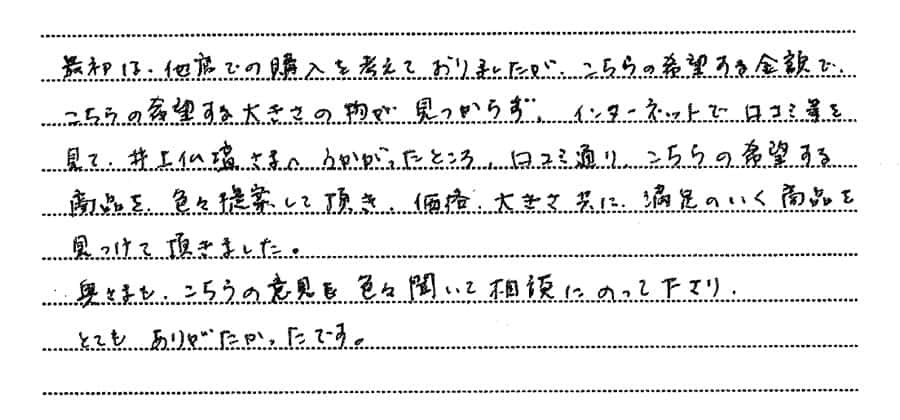 最初は、他店での購入を考えておりましたが、こちらの希望する金額で、
こちらの希望する大きさの物が見つからず、インターネットで口コミ等を
見て、井上仏壇さまへうかがったところ、口コミ通り、こちらの希望する
商品を、色々提案して頂き、価格、大きさ共に、満足のいく商品を
見つけて頂きました。
奥さまも、こちらの意見を色々聞いて相談にのって下さり、
とてもありがたかったです。